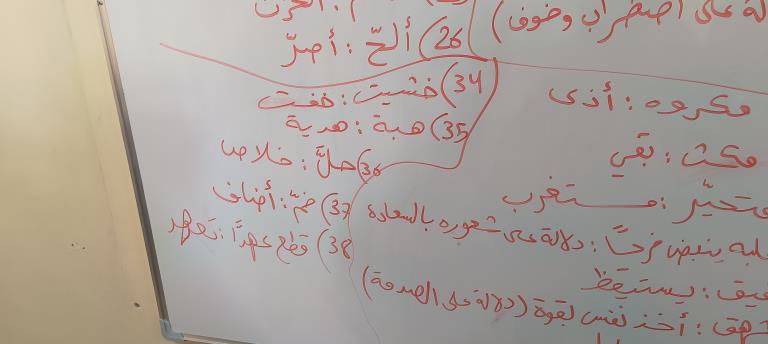 لة على اضطراب وخوف)
مكروه : أذى
مكث : بقي
متحيّر : مستغرب
قلبه ينبض فرحًا : دلالة على شعوره بالسعادة
يستيقظ
شهق : أخذ نفس بقوة (دلالة على الصدمة)
الحزن
26) ألحّ : أصرّ
34) خشيت : خفت
35) هبة : هدية
36) حلَّ : خلاص
37) ضمّ : أضاف
38) قطع عهدًا : تعهد